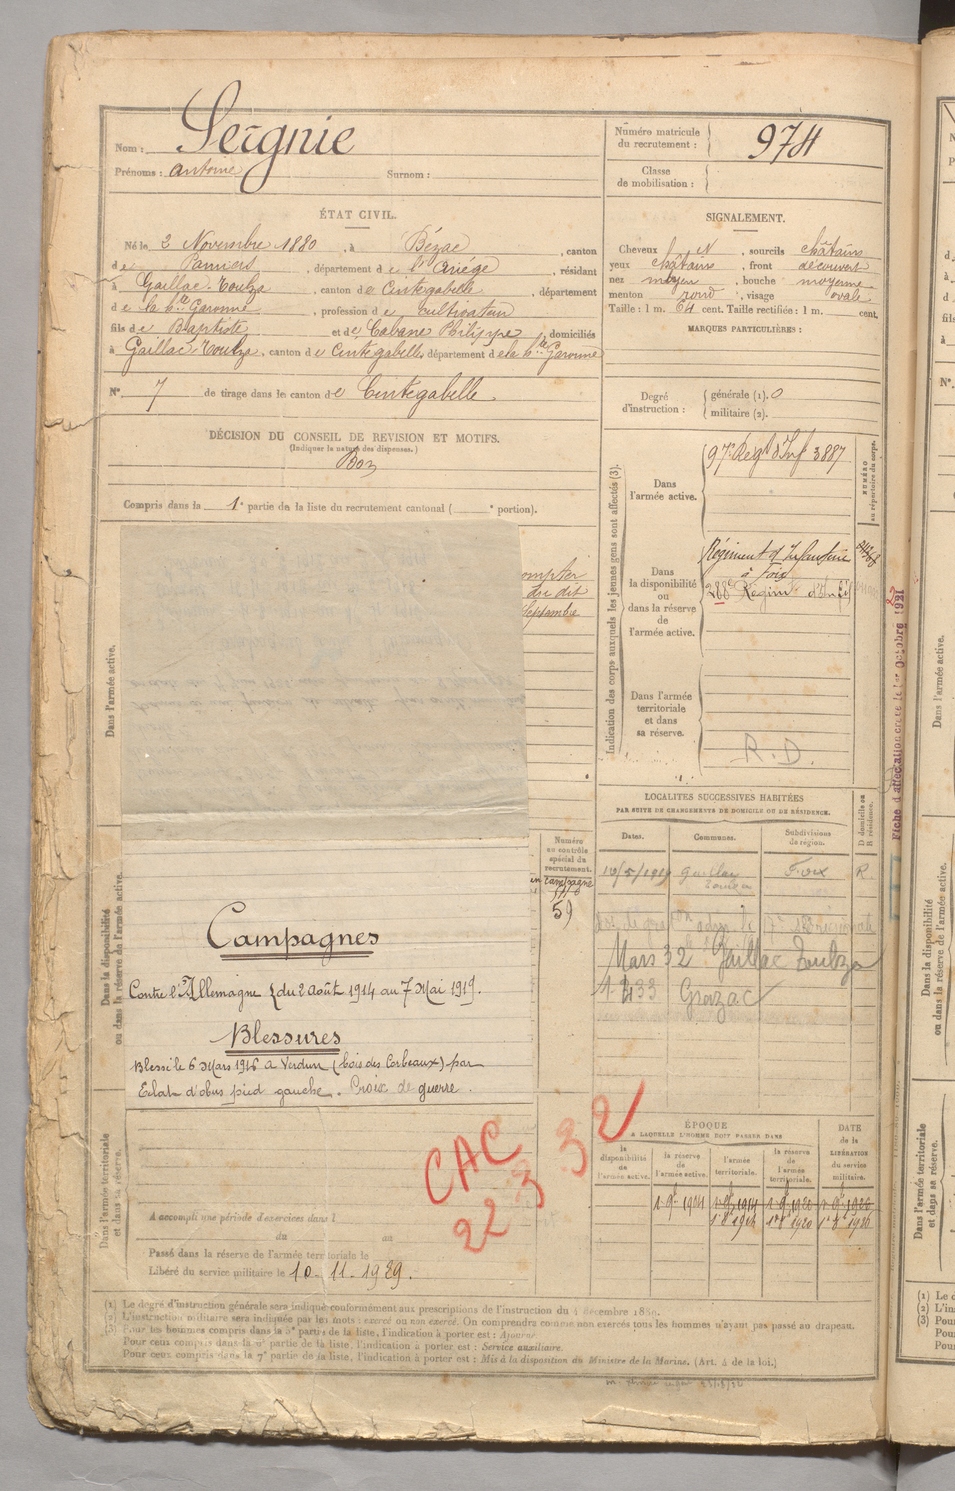 Nom : Sergnie
Prénoms : antoine Surnom :
Numéro matricule du recrutement : 974
Classe de mobilisation :
ÉTAT CIVIL.
Né le 2 Novembre 1880, à Bézac, canton
de Pamiers, département de l'Ariége, résidant
à Gaillac-Toulza, canton de Cintegabelle, département
de la hte Garonne, profession de Cultivateur
fils de Baptiste et de Cabane Philippe, domiciliés
à Gaillac-Toulza, canton de Cintegabelle, département de la hte Garonne
N° 7 de tirage dans le canton de Cintegabelle
SIGNALEMENT.
Cheveux N, sourcils châtains
yeux châtains, front découvert
nez moyen, bouche moyenne
menton rond, visage ovale
Taille : 1 m. 64 cent. Taille rectifiée : 1 m. cent.
MARQUES PARTICULIÈRES :
Degré d'instruction : générale (1). 0
militaire (2).
DÉCISION DU CONSEIL DE REVISION ET MOTIFS.
(Indiquer la nature des dispenses.)
Bon
Compris dans la 1e partie de la liste du recrutement cantonal ( e portion).
Indication des corps auxquels les jeunes gens sont affectés (3).
NUMÉRO au répertoire du corps.
Dans l'armée active.
97e Regt d'Inf 3887
Dans la disponibilité ou dans la réserve de l'armée active.
Régiment d'Infanterie
à Foix
288e Regim
Dans l'armée territoriale et dans sa réserve.
R. D.
Fiche d'affectation créée le 1er Octobre 1921
Dans l'armée active.
compter
du dit
Septembre
LOCALITÉS SUCCESSIVES HABITÉES
PAR SUITE DE CHANGEMENTS DE DOMICILE OU DE RÉSIDENCE.
Dates. Communes. Subdivisions de région. D domicile ou R résidence.
Gaillac Toulza Foix R.
Mars 32 Gaillac Toulza
Grazac
Numéro au contrôle spécial du recrutement.
campagne
59
Dans la disponibilité ou dans la réserve de l'armée active.
Campagnes
Contre l'Allemagne du 2 août 1914 au 7 Mai 1919.
Blessures
Blessé le 6 Mars 1916 à Verdun (bois des Corbeaux) par
Eclat d'obus pied gauche. Croix de guerre.
CAC
22 3 32
ÉPOQUE
A LAQUELLE L'HOMME DOIT PASSER DANS
la disponibilité de l'armée active. la réserve de l'armée active. l'armée territoriale. la réserve de l'armée territoriale.
DATE de la LIBÉRATION du service militaire.
1er 8e 1914 1er 8e 1920 1er 8e 1926
Dans l'armée territoriale et dans sa réserve.
A accompli une période d'exercices dans l
du au
Passé dans la réserve de l'armée territoriale le
Libéré du service militaire le 10-11-1929.
(1) Le degré d'instruction générale sera indiqué conformément aux prescriptions de l'instruction du 4 décembre 1889.
(2) L'instruction militaire sera indiquée par les mots : exercé ou non exercé. On comprendra comme non exercés tous les hommes n'ayant pas passé au drapeau.
(3) Pour les hommes compris dans la 5e partie de la liste, l'indication à porter est : Ajourné.
Pour ceux compris dans la 6e partie de la liste, l'indication à porter est : Service auxiliaire.
Pour ceux compris dans la 7e partie de la liste, l'indication à porter est : Mis à la disposition du Ministre de la Marine. (Art. 4 de la loi.)